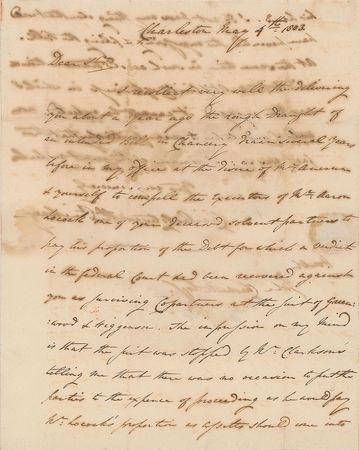 Charleston May 4th. 1803.
Dear Sir,
I recollect very well the delivering
you about a year ago the rough Draught of
an intended Bill in Chancery drawn several Years
before in my Office at the Desire of Mr.
& yourself to compell the executors of Mr. Aaron
Loocock one of your Deceased solvent partners to
pay his proportion of the Debt for which a verdict
in the federal Court had been recovered against
you as surviving Copartners at the suit of Green:
wood & Higginson. The impression on my Mind
is that the suit was stopped by Mr. Clarkson's
telling me that there was no occasion to put the
parties to the expence of proceeding as he would pay
Mr. Loocock's proportion as assets should come into